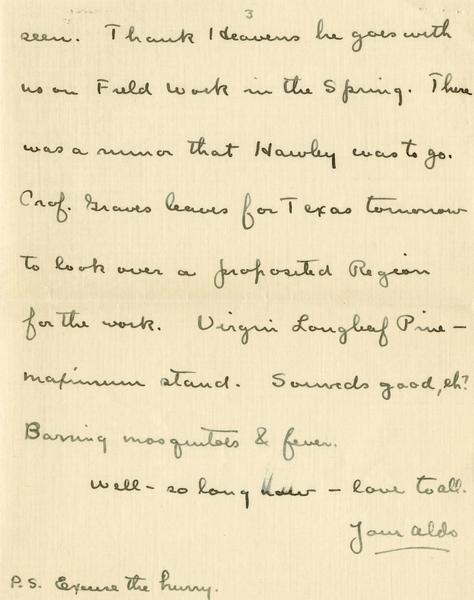 3
seen. Thank Heavens he goes with
us on Field Work in the Spring. There
was a rumor that Hawley was to go.
Prof. Graves leaves for Texas tomorrow
to look over a proposited Region
for the work. Virgin Longleaf Pine -
maximum stand. Sounds good, eh?
Barring mosquitoes & fever.
Well - so long now - love to all.
Your Aldo
P.S. Excuse the hurry.